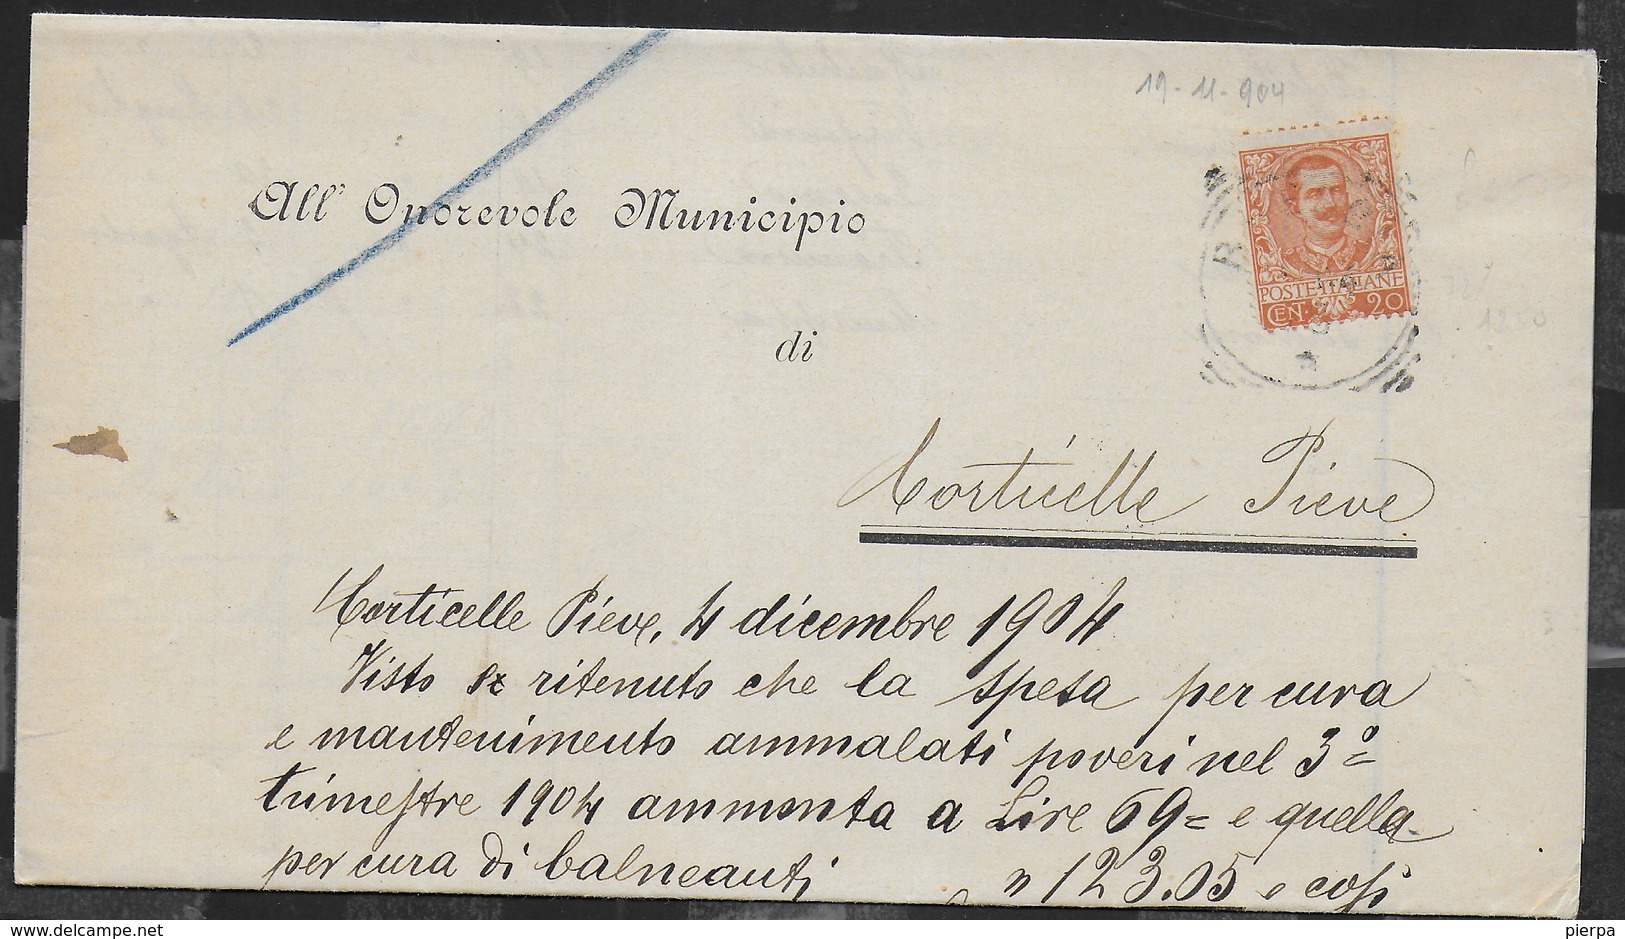 19-11-904
All' Onorevole Municipio
POSTE ITALIANE
CEN. 20
di
Corticelle Pieve
Corticelle Pieve, 4 dicembre 1904
Visto e ritenuto che la spesa per cura
e mantenimento ammalati poveri nel 3º
trimestre 1904 ammonta a Lire 69= e quella
per cura di balneanti " 123.05 e così
delcampe.net
pierpa